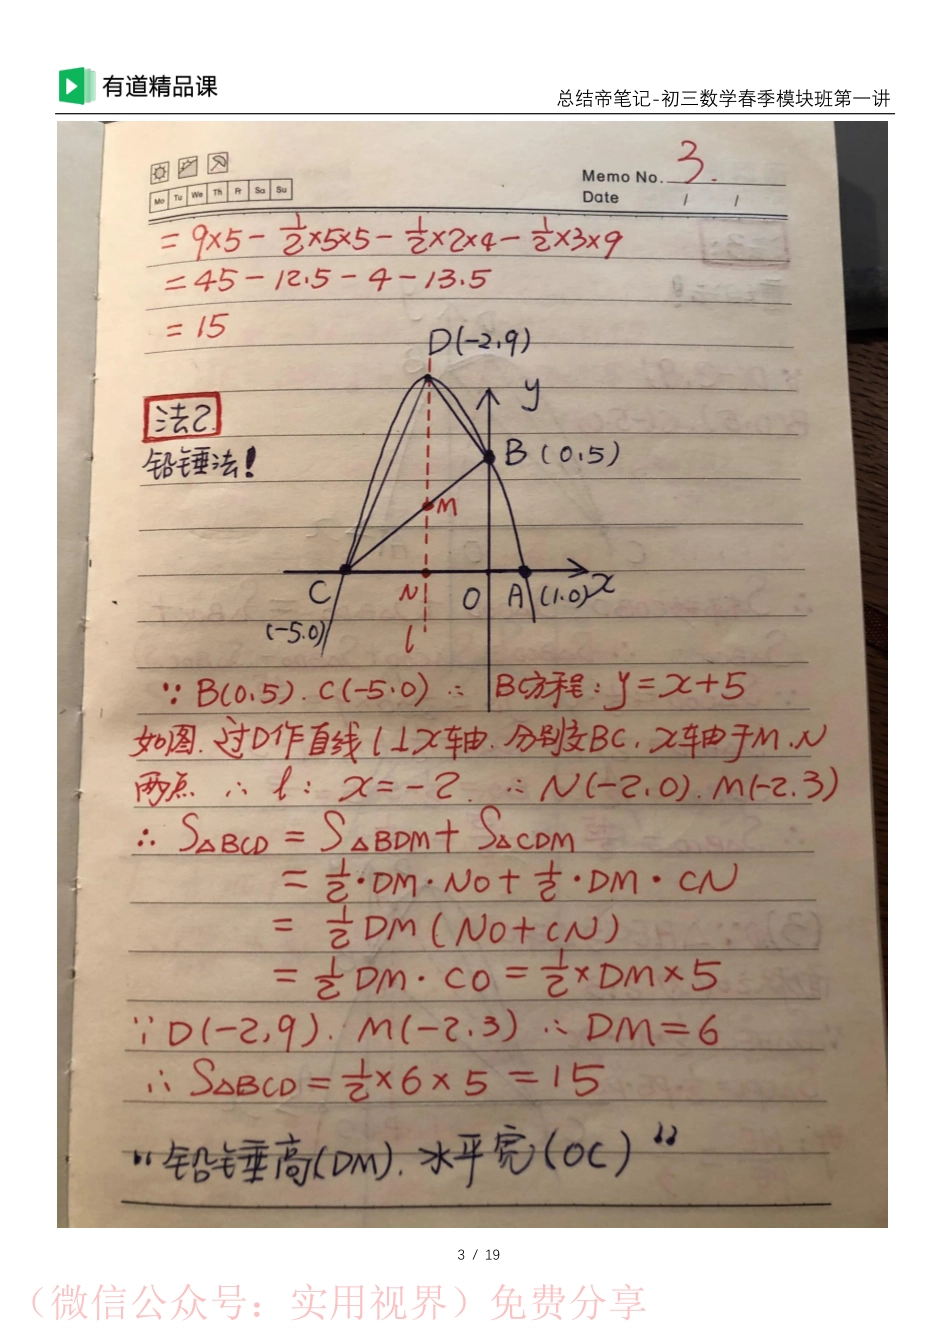 有道精品课
总结帝笔记-初三数学春季模块班第一讲
Memo No. 3.
Mo Tu We Th Fr Sa Su
Date / /
= 9×5 - 1/2×5×5 - 1/2×2×4 - 1/2×3×9
= 45 - 12.5 - 4 - 13.5
= 15
D(-2,9)
法2.
铅锤法!
y
B (0,5)
M
C
N
O
A (1.0)
x
(-5.0)
l
∵ B(0,5). C(-5,0) ∴ BC方程: y=x+5
如图.过D作直线l⊥x轴.分别交BC,x轴于M、N
两点 ∴ l: x=-2. ∴ N(-2,0). M(-2,3)
∴ S△BCD = S△BDM + S△CDM
= 1/2·DM·NO + 1/2·DM·CN
= 1/2 DM (NO+CN)
= 1/2 DM·CO = 1/2×DM×5
∵ D(-2,9). M(-2,3) ∴ DM=6
∴ S△BCD = 1/2×6×5 = 15
“铅锤高(DM). 水平宽(OC)”
3 / 19
(微信公众号：实用视界）免费分享